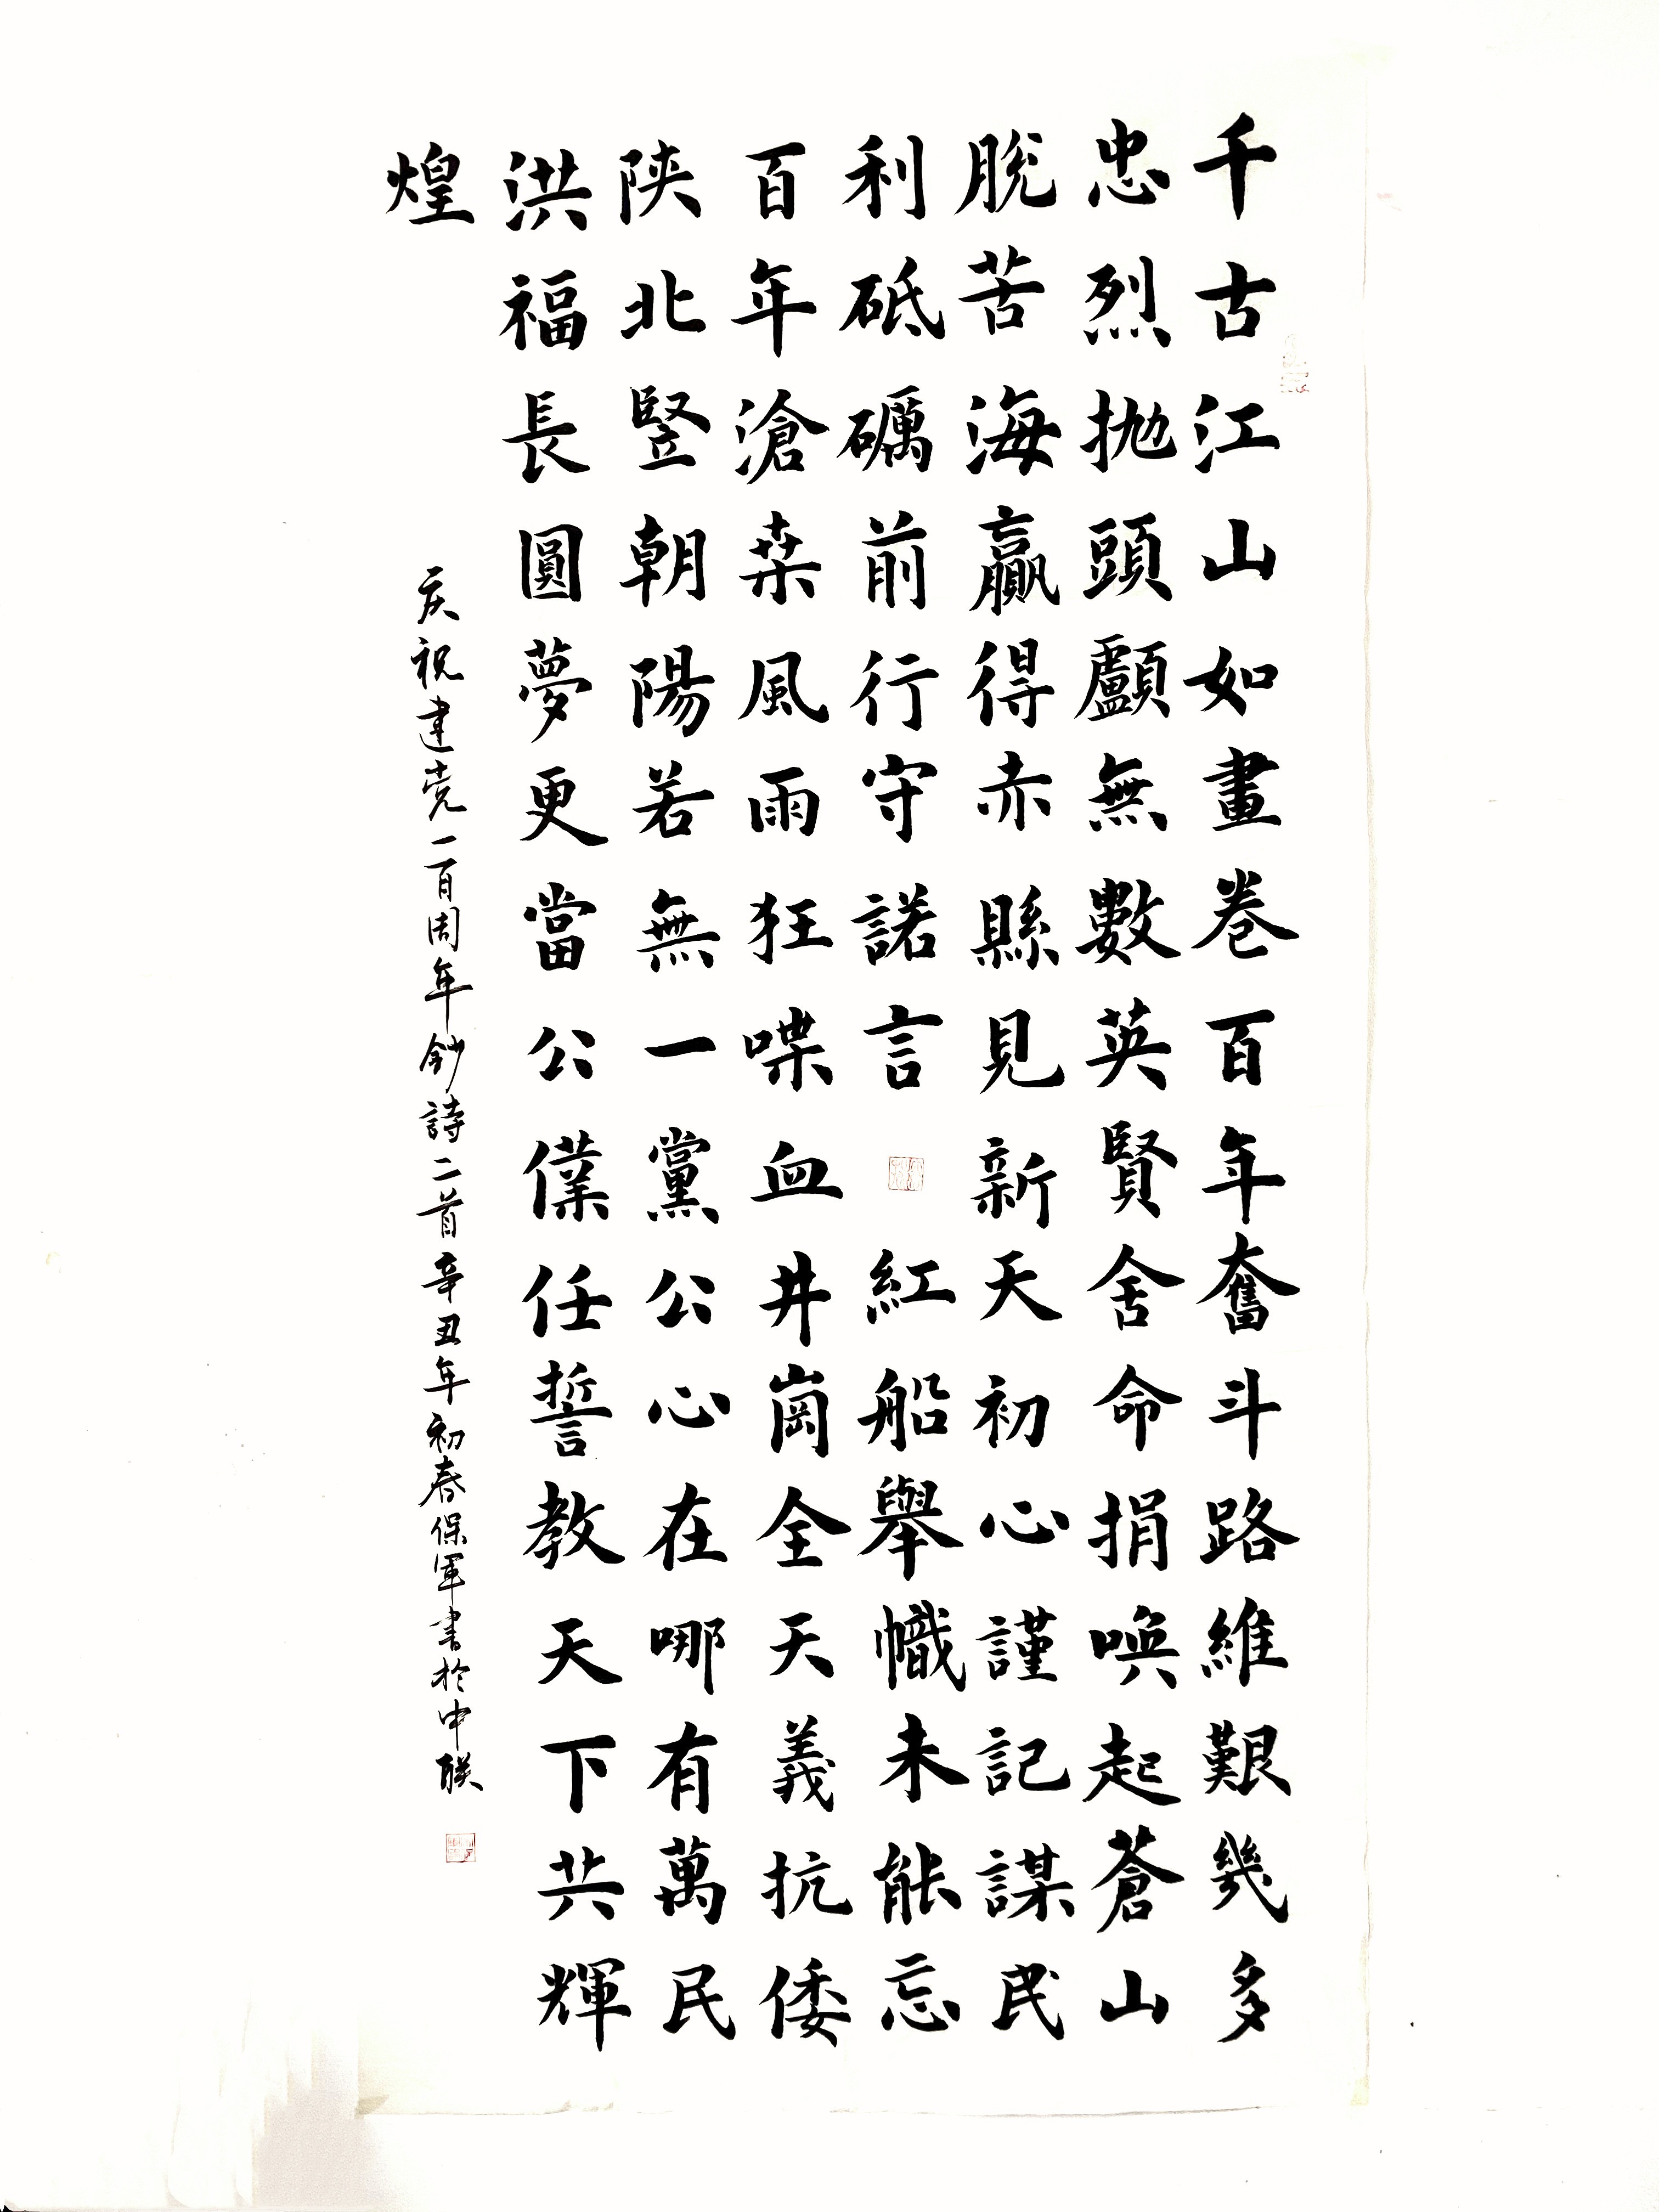 千古江山如畫卷百年奮斗路維艱幾多
忠烈拋頭顱無數英賢舍命捐喚起蒼山
脫苦海贏得赤縣見新天初心謹記謀民
利砥礪前行守諾言紅船舉幟未能忘
百年滄桒風雨狂喋血井崗全天義抗倭
陝北豎朝陽若無一黨公心在哪有萬民
洪福長圓夢更當公僕任誓教天下共輝
煌
庆祝建党一百周年鈔詩二首辛丑年初春保軍書於中联